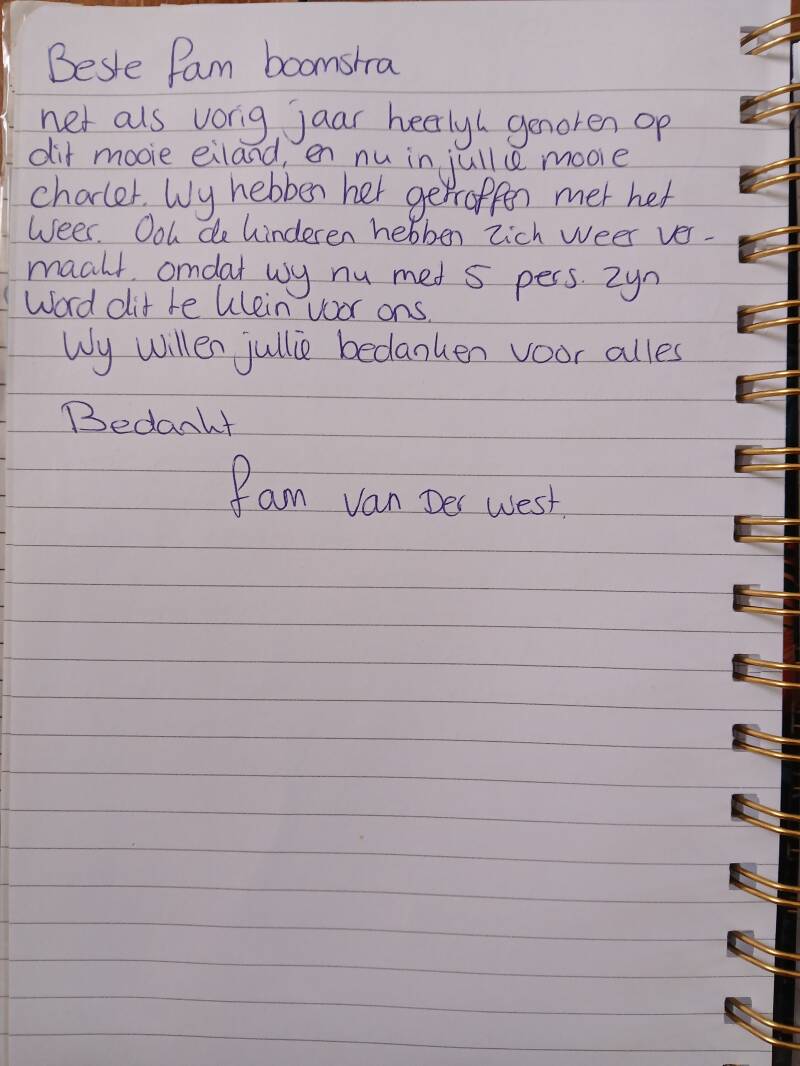 Beste fam boomstra
net als vorig jaar heerlyk genoten op
dit mooie eiland, en nu in jullie mooie
charlet. Wy hebben het getroffen met het
weer. Ook de kinderen hebben zich weer ver-
maakt. omdat wy nu met 5 pers. zyn
word dit te klein voor ons.
Wy willen jullie bedanken voor alles
Bedankt
fam van Der West.